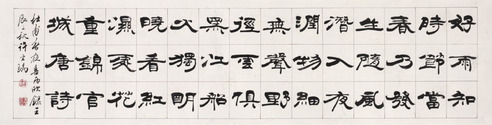 好雨知
時節當
春乃發
生隨風
潛入夜
潤物細
無聲野
徑雲俱
黑江船
火獨明
曉看紅
濕處花
重錦官
城唐詩
杜甫春夜喜雨